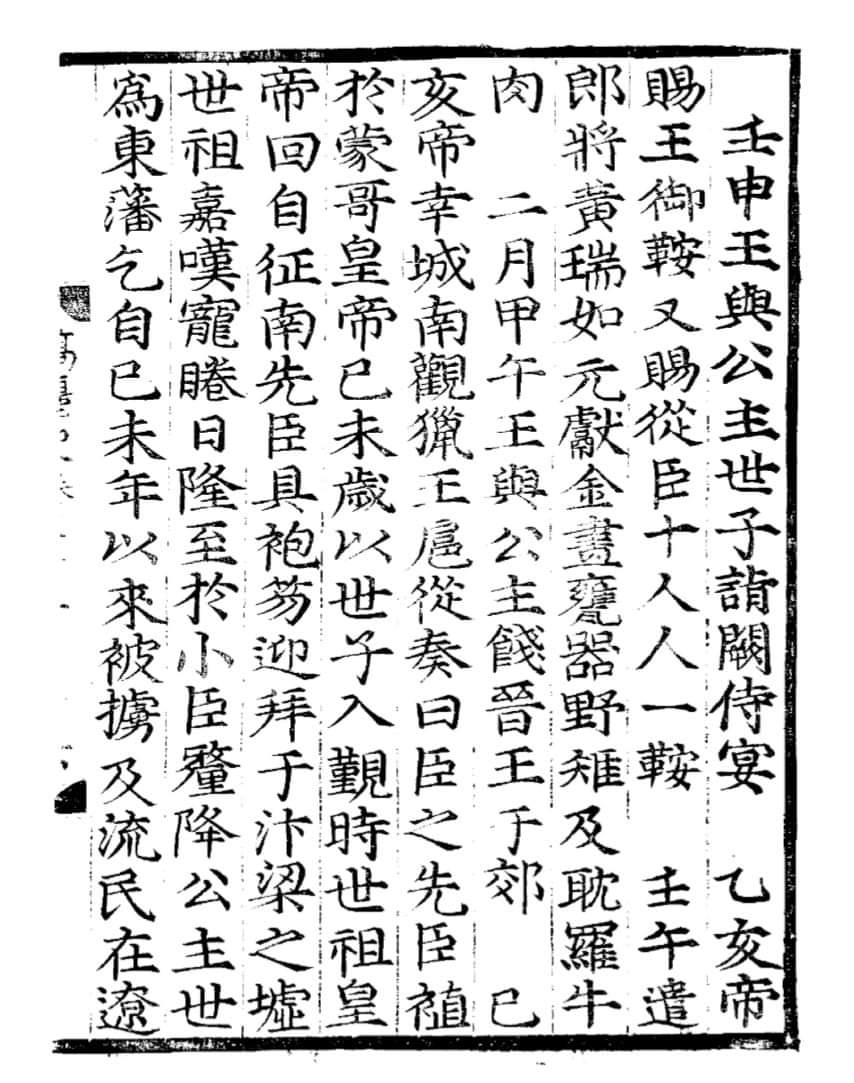 壬申王與公主世子詣闕侍宴　乙亥帝
賜王御鞍又賜從臣十人人一鞍　壬午遣
郎將黃瑞如元獻金畫甕器野雉及耽羅牛
肉　二月甲午王與公主餞晉王于郊　己
亥帝幸城南觀獵王扈從奏曰臣之先臣禃
於蒙哥皇帝己未歲以世子入覲時世祖皇
帝回自征南先臣具袍笏迎拜于汴梁之墟
世祖嘉嘆寵睠日隆至於小臣釐降公主世
爲東藩乞自己未年以來被擄及流民在遼